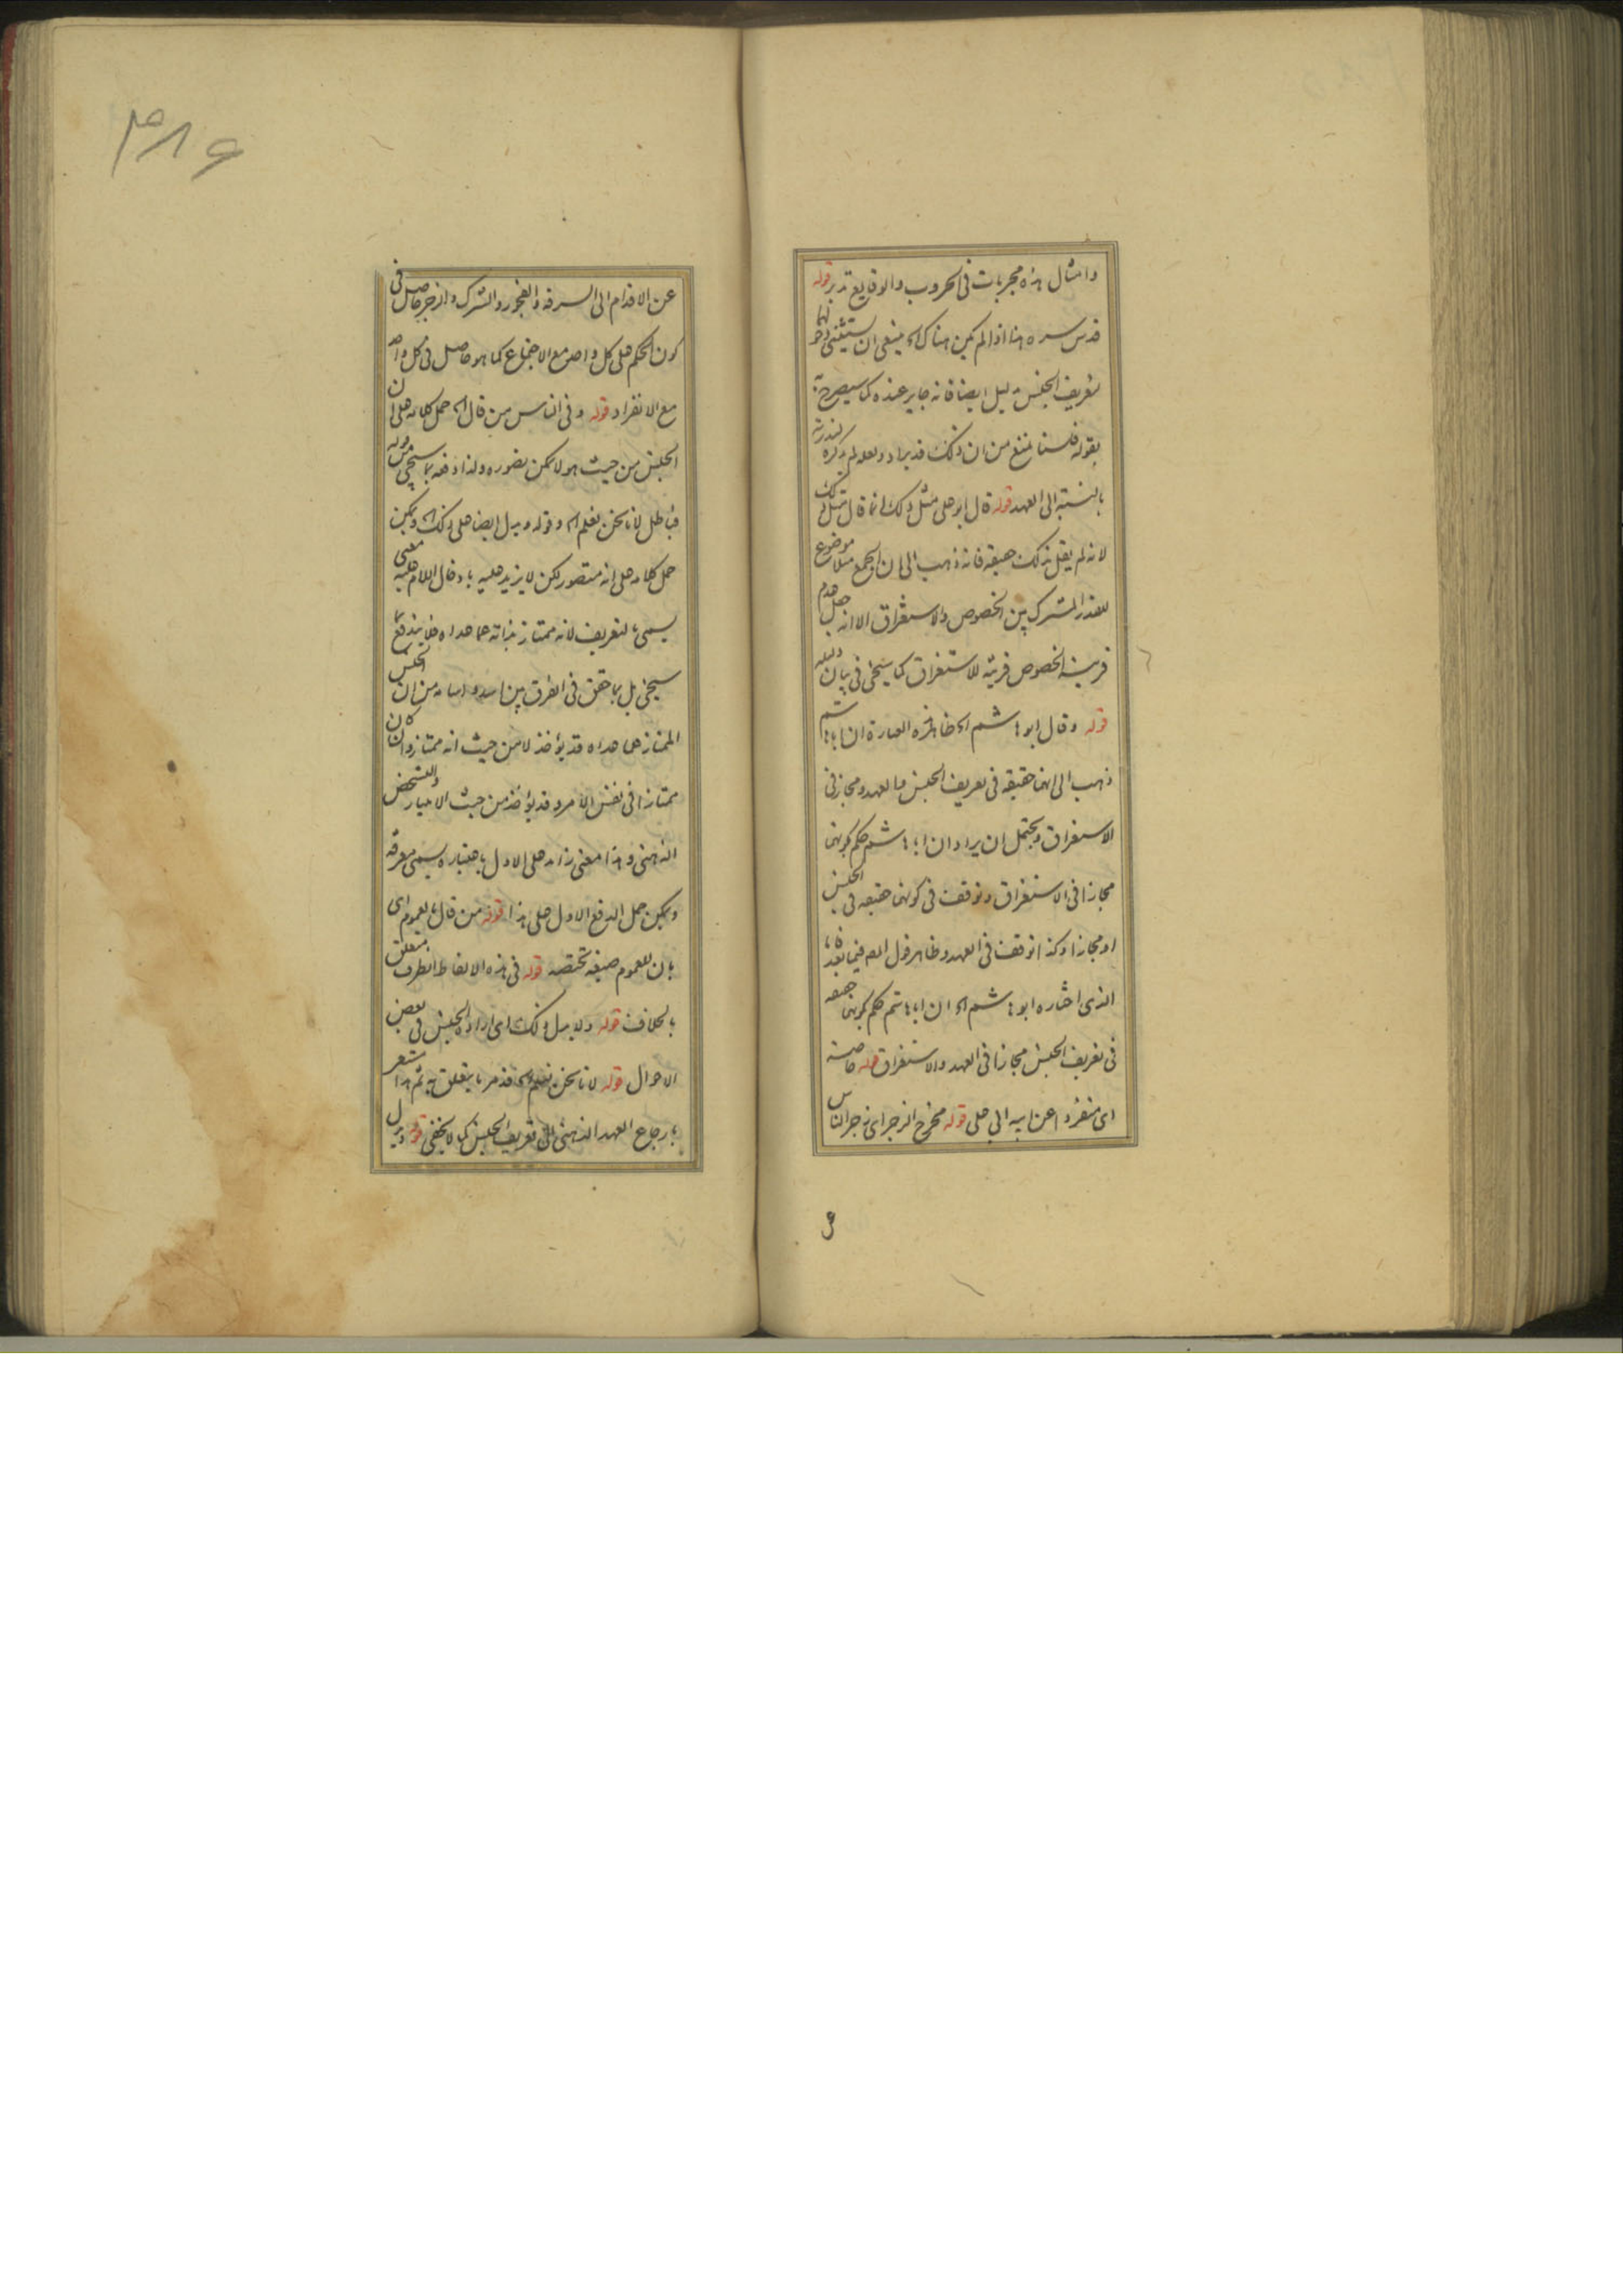 وامثال هذه مجربات فى الحروب والوقايع تدبر قوله
قدس سره هنا اذا لم يكن هناك اه ينبغى ان يستثنى
تعريف الجنس ايضا فانه جايز عنده كما سيصرح به
بقوله فلسنا نمنع من ان ذلك قد يراد ولعله لم يذكره لندرته
بالنسبة الى العهد قوله قال ابو على مثل ذلك انما قال مثل ذلك
لانه لم يقل بذلك حقيقة فانه ذهب الى ان الجمع مثلا موضوع
للقدر المشترك بين الخصوص والاستغراق الا انه جعل عدم
قرينة الخصوص قرينة للاستغراق كما سيجئ فى بيان دليله
قوله وقال ابو هاشم اه ظاهر هذه العبارة ان ابا هاشم
ذهب الى انها حقيقة فى تعريف الجنس والعهد ومجاز فى
الاستغراق ويحتمل ان يراد ان ابا هاشم حكم بكونها
مجازا فى الاستغراق وتوقف فى كونها حقيقة فى الجنس
او مجازا وكذا توقف فى العهد وظاهر قول المص فيما بعد
الذى اختاره ابو هاشم اه ان ابا هاشم حكم بكونها حقيقة
فى تعريف الجنس مجازا فى العهد والاستغراق قوله خاصة
اى منفردا عن ابيه ابى على قوله مخرج الزجر اى زجر الناس
عن الاقدام الى السرقة والفجور والشرك والزجر حاصل فى
كون الحكم على كل واحد مع الاجتماع كما هو حاصل فى كل واحد
مع الانفراد قوله وفى الناس من قال اه حمل كلامه على ان
الجنس من حيث هو لا يمكن تصوره ولذا دفعه بما سيجئ من قوله
فباطل لانا نحن نعلم اه وقوله ويدل ايضا على ذلك اه ويمكن
حمل كلامه على انه متصور لكن لا يزيد عليه بادخال اللام عليه معنى
يسمى بالتعريف لانه ممتاز بذاته عما عداه فلا يندفع بما
سيجئ بل بما حقق فى الفرق بين اسد واسامة من ان الجنس
الممتاز عما عداه قد يؤخذ لا من حيث انه ممتاز وان كان
ممتازا فى نفس الامر وقد يؤخذ من حيث الامتياز والتشخص
الذهنى وهذا معنى زايد على الاول باعتباره يسمى معرفة
ويمكن حمل الدفع الاول على هذا قوله من قال بالعموم اى
بان للعموم صيغة تختصه قوله فى هذه الالفاظ الظرف متعلق
بالخلاف قوله ولا يبطل ذلك اى ارادة الجنس فى بعض
الاحوال قوله لانا نحن نعلم اه قد مر ما يتعلق به ثم هذا مشعر
بارجاع العهد الذهنى الى تعريف الجنس كما لا يخفى قوله ويدل